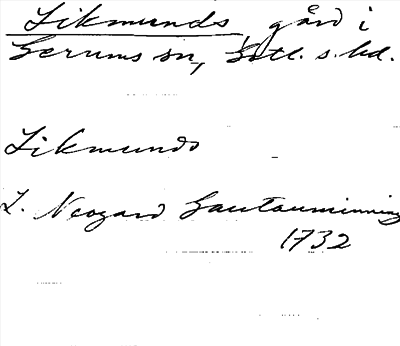 Likmunds, gård i
Gerums sn, Gotl. s. hd.
Likmunds
L. Neogard Gautauminning
1732